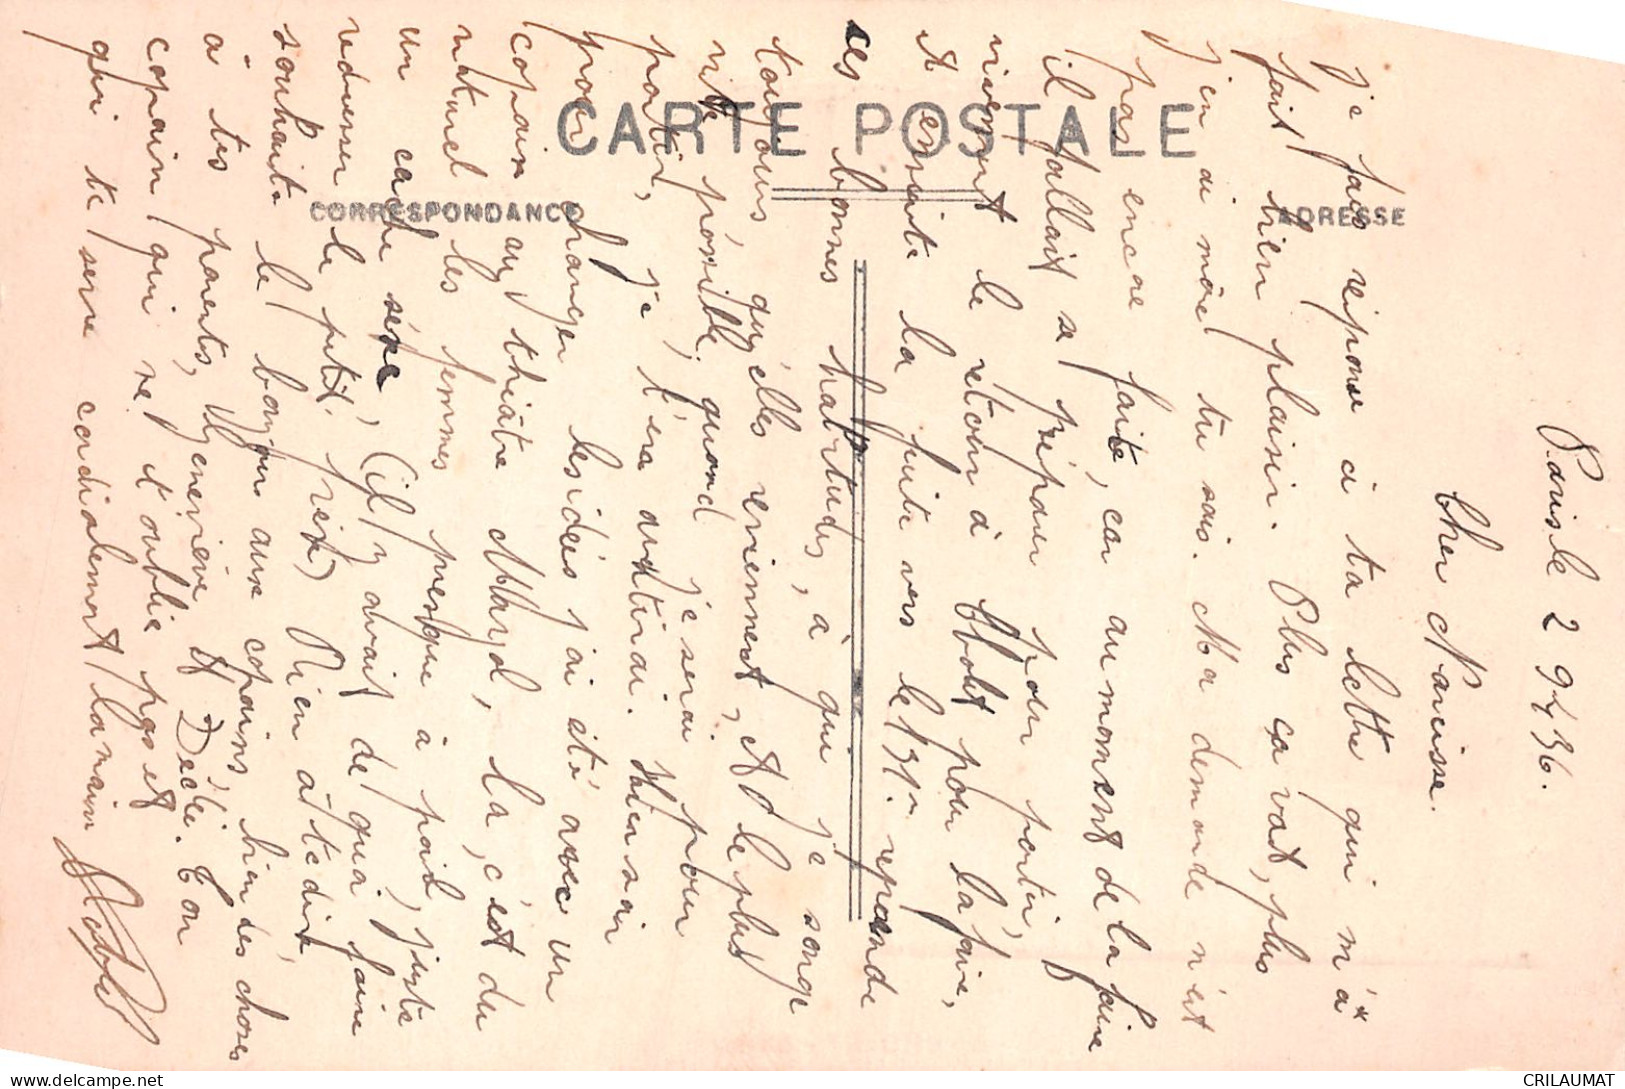 CARTE POSTALE
CORRESPONDANCE
ADRESSE
Paris le 2 9 36.
Cher Narcisse.
Je fais réponse à ta lettre qui m'a
fait bien plaisir. Plus ça va et, plus
j'en ai marre tu sais. Ma demande n'est
pas encore faite, car au moment de la faire
il fallait se préparer pour partir,
vivement le retour à pour la faire,
et ensuite la fuite vers le 31e. reprendre
ces bonnes habitudes, à qui je songe
toujours, qu'elles reviennent, et le plus
vite possible, quand je serai pour
partir, je t'en avertirai. Hier soir
pour changer les idées j'ai été avec un
copain au théâtre Mayol, la, c'est du
naturel les femmes presque à poil, juste
un cache séxe, (il y avait de quoi faire
redresser le petit frère) Rien à te dire
souhaite le bonjour aux copains, bien des choses
à tes parents, Geneviève et Dédée. Ton
copain qui ne t'oublie pas et
qui te serre cardialement la main
CRILAUMAT